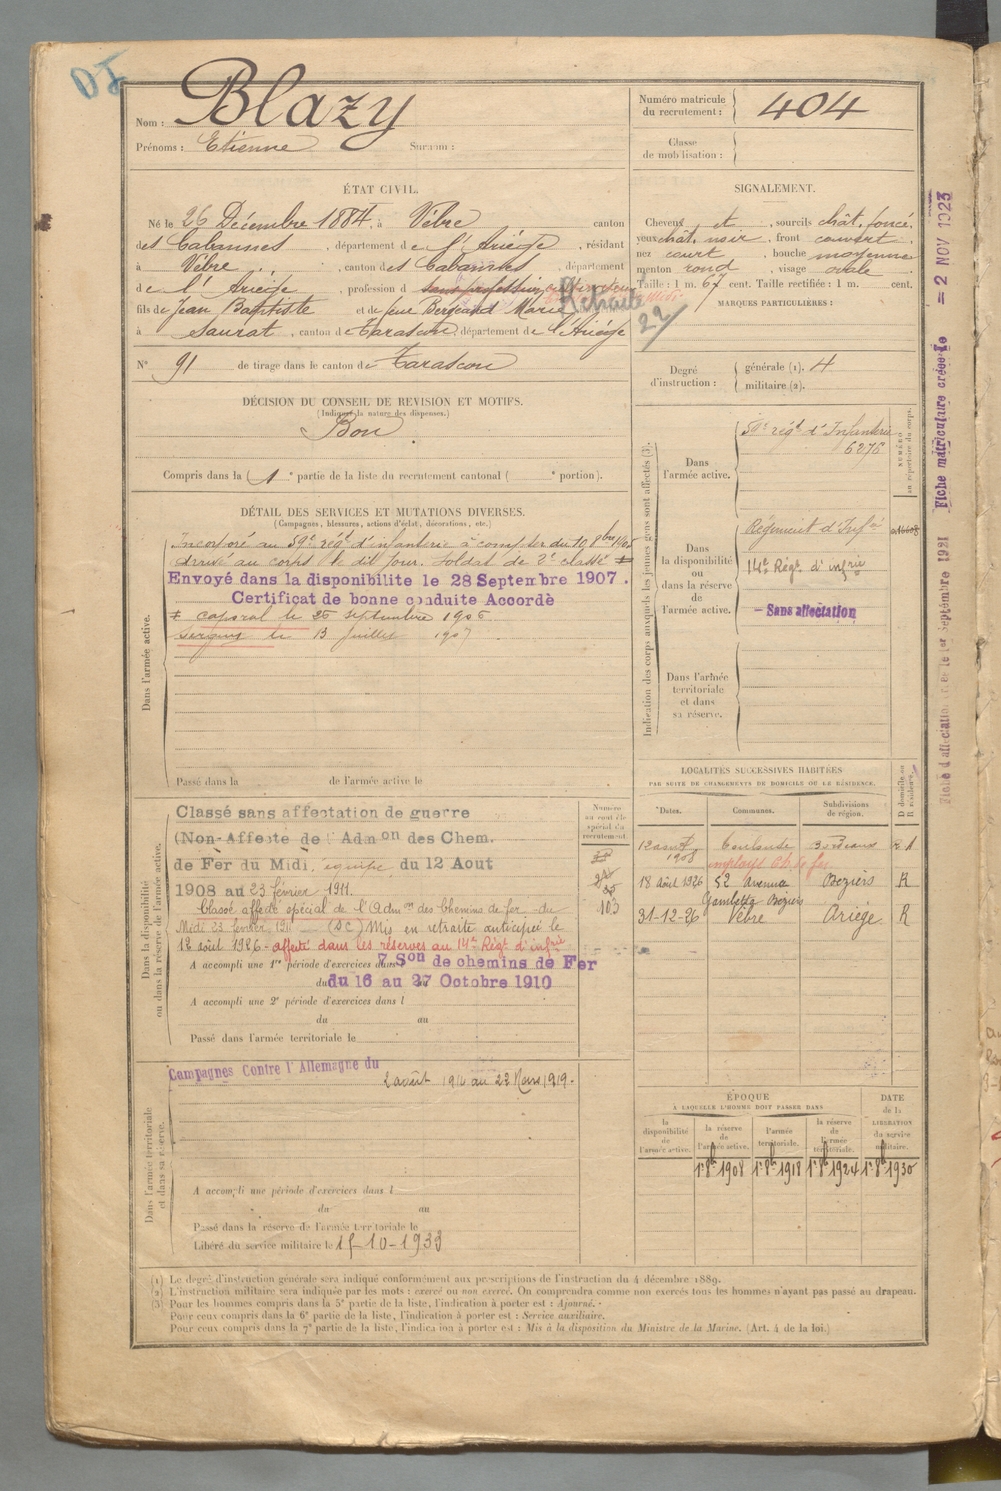 DI
Nom : Blazy
Prénoms : Etienne Surnom :
Numéro matricule du recrutement : 404
Classe de mobilisation :
ÉTAT CIVIL.
Né le 26 Décembre 1884, à Vèbre canton
des Cabannes, département de l'Ariège, résidant
à Vèbre, canton des Cabannes, département
de l'Ariège, profession d sans profession
fils de Jean Baptiste et de feue Bergeaud Marie
à Saurat, canton de Tarascon, département de l'Ariège
Retraité
22
N° 91 de tirage dans le canton de Tarascon
SIGNALEMENT.
Cheveux et, sourcils chât. foncé,
yeux chât. noir, front couvert,
nez court, bouche moyenne
menton rond, visage ovale
Taille : 1 m. 67 cent. Taille rectifiée : 1 m. cent.
MARQUES PARTICULIÈRES :
Degré d'instruction : générale (1). 4
militaire (2).
DÉCISION DU CONSEIL DE REVISION ET MOTIFS.
(Indiquer la nature des dispenses.)
Bon
Compris dans la 1e partie de la liste du recrutement cantonal ( e portion).
DÉTAIL DES SERVICES ET MUTATIONS DIVERSES.
(Campagnes, blessures, actions d'éclat, décorations, etc.)
Dans l'armée active.
Incorporé au 59e régt d'infanterie à compter du 10 8bre 1905
arrivé au corps le dit jour. Soldat de 2e classe #
Envoyé dans la disponibilite le 28 Septembre 1907.
Certificat de bonne conduite Accordè
# caporal le 26 septembre 1906
sergent le 13 juillet 1907
Passé dans la de l'armée active le
Indication des corps auxquels les jeunes gens sont affectés (3).
NUMÉRO au répertoire du corps.
Dans l'armée active.
59e régt d'Infanterie
6276
Dans la disponibilité ou dans la réserve de l'armée active.
Régiment d'Infie
14e Régt d'infrie
- Sans affectation
Dans l'armée territoriale et dans sa réserve.
Fiche matriculaire créée le = 2 NOV 1923
Dans la disponibilité ou dans la réserve de l'armée active.
Classé sans affectation de guerre
(Non-Affecté de l'Admon des Chem.
de Fer du Midi, équipe du 12 Aout
1908 au 23 février 1911.
Classé affecté spécial de l'Admon des Chemins de fer du
Midi 23 février 1911 (DC) Mis en retraite anticipée le
18 août 1926 - affecté dans les réserves au 14e Régt d'infrie
A accompli une 1re période d'exercices dans 7 Son de chemins de Fer
du 16 au 27 Octobre 1910
A accompli une 2e période d'exercices dans l
du au
Passé dans l'armée territoriale le
Numéro au contrôle spécial du recrutement.
103
LOCALITÉS SUCCESSIVES HABITÉES
PAR SUITE DE CHANGEMENTS DE DOMICILE OU DE RÉSIDENCE.
Dates. Communes. Subdivisions de région. D domicile ou R résidence.
12 août 1908 Toulouse Bordeaux
employé Ch. de fer
18 Août 1926 52 Avenue Gambetta Béziers Beziers R
31-12-26 Vèbre Ariège R
Dans l'armée territoriale et dans sa réserve.
Campagnes Contre l'Allemagne du 2 août 1914 au 22 Mars 1919.
A accompli une période d'exercices dans l
du au
Passé dans la réserve de l'armée territoriale le
Libéré du service militaire le 15-10-1933
ÉPOQUE
A LAQUELLE L'HOMME DOIT PASSER DANS
la disponibilité de l'armée active. la réserve de l'armée active. l'armée territoriale. la réserve de l'armée territoriale.
DATE de la LIBÉRATION du service militaire.
1r 8bre 1908 1r 8bre 1918 1r 8bre 1924 1r 8bre 1930
(1) Le degré d'instruction générale sera indiqué conformément aux prescriptions de l'instruction du 4 décembre 1889.
(2) L'instruction militaire sera indiquée par les mots : exercé ou non exercé. On comprendra comme non exercés tous les hommes n'ayant pas passé au drapeau.
(3) Pour les hommes compris dans la 5e partie de la liste, l'indication à porter est : Ajourné.
Pour ceux compris dans la 6e partie de la liste, l'indication à porter est : Service auxiliaire.
Pour ceux compris dans la 7e partie de la liste, l'indication à porter est : Mis à la disposition du Ministre de la Marine. (Art. 4 de la loi.)